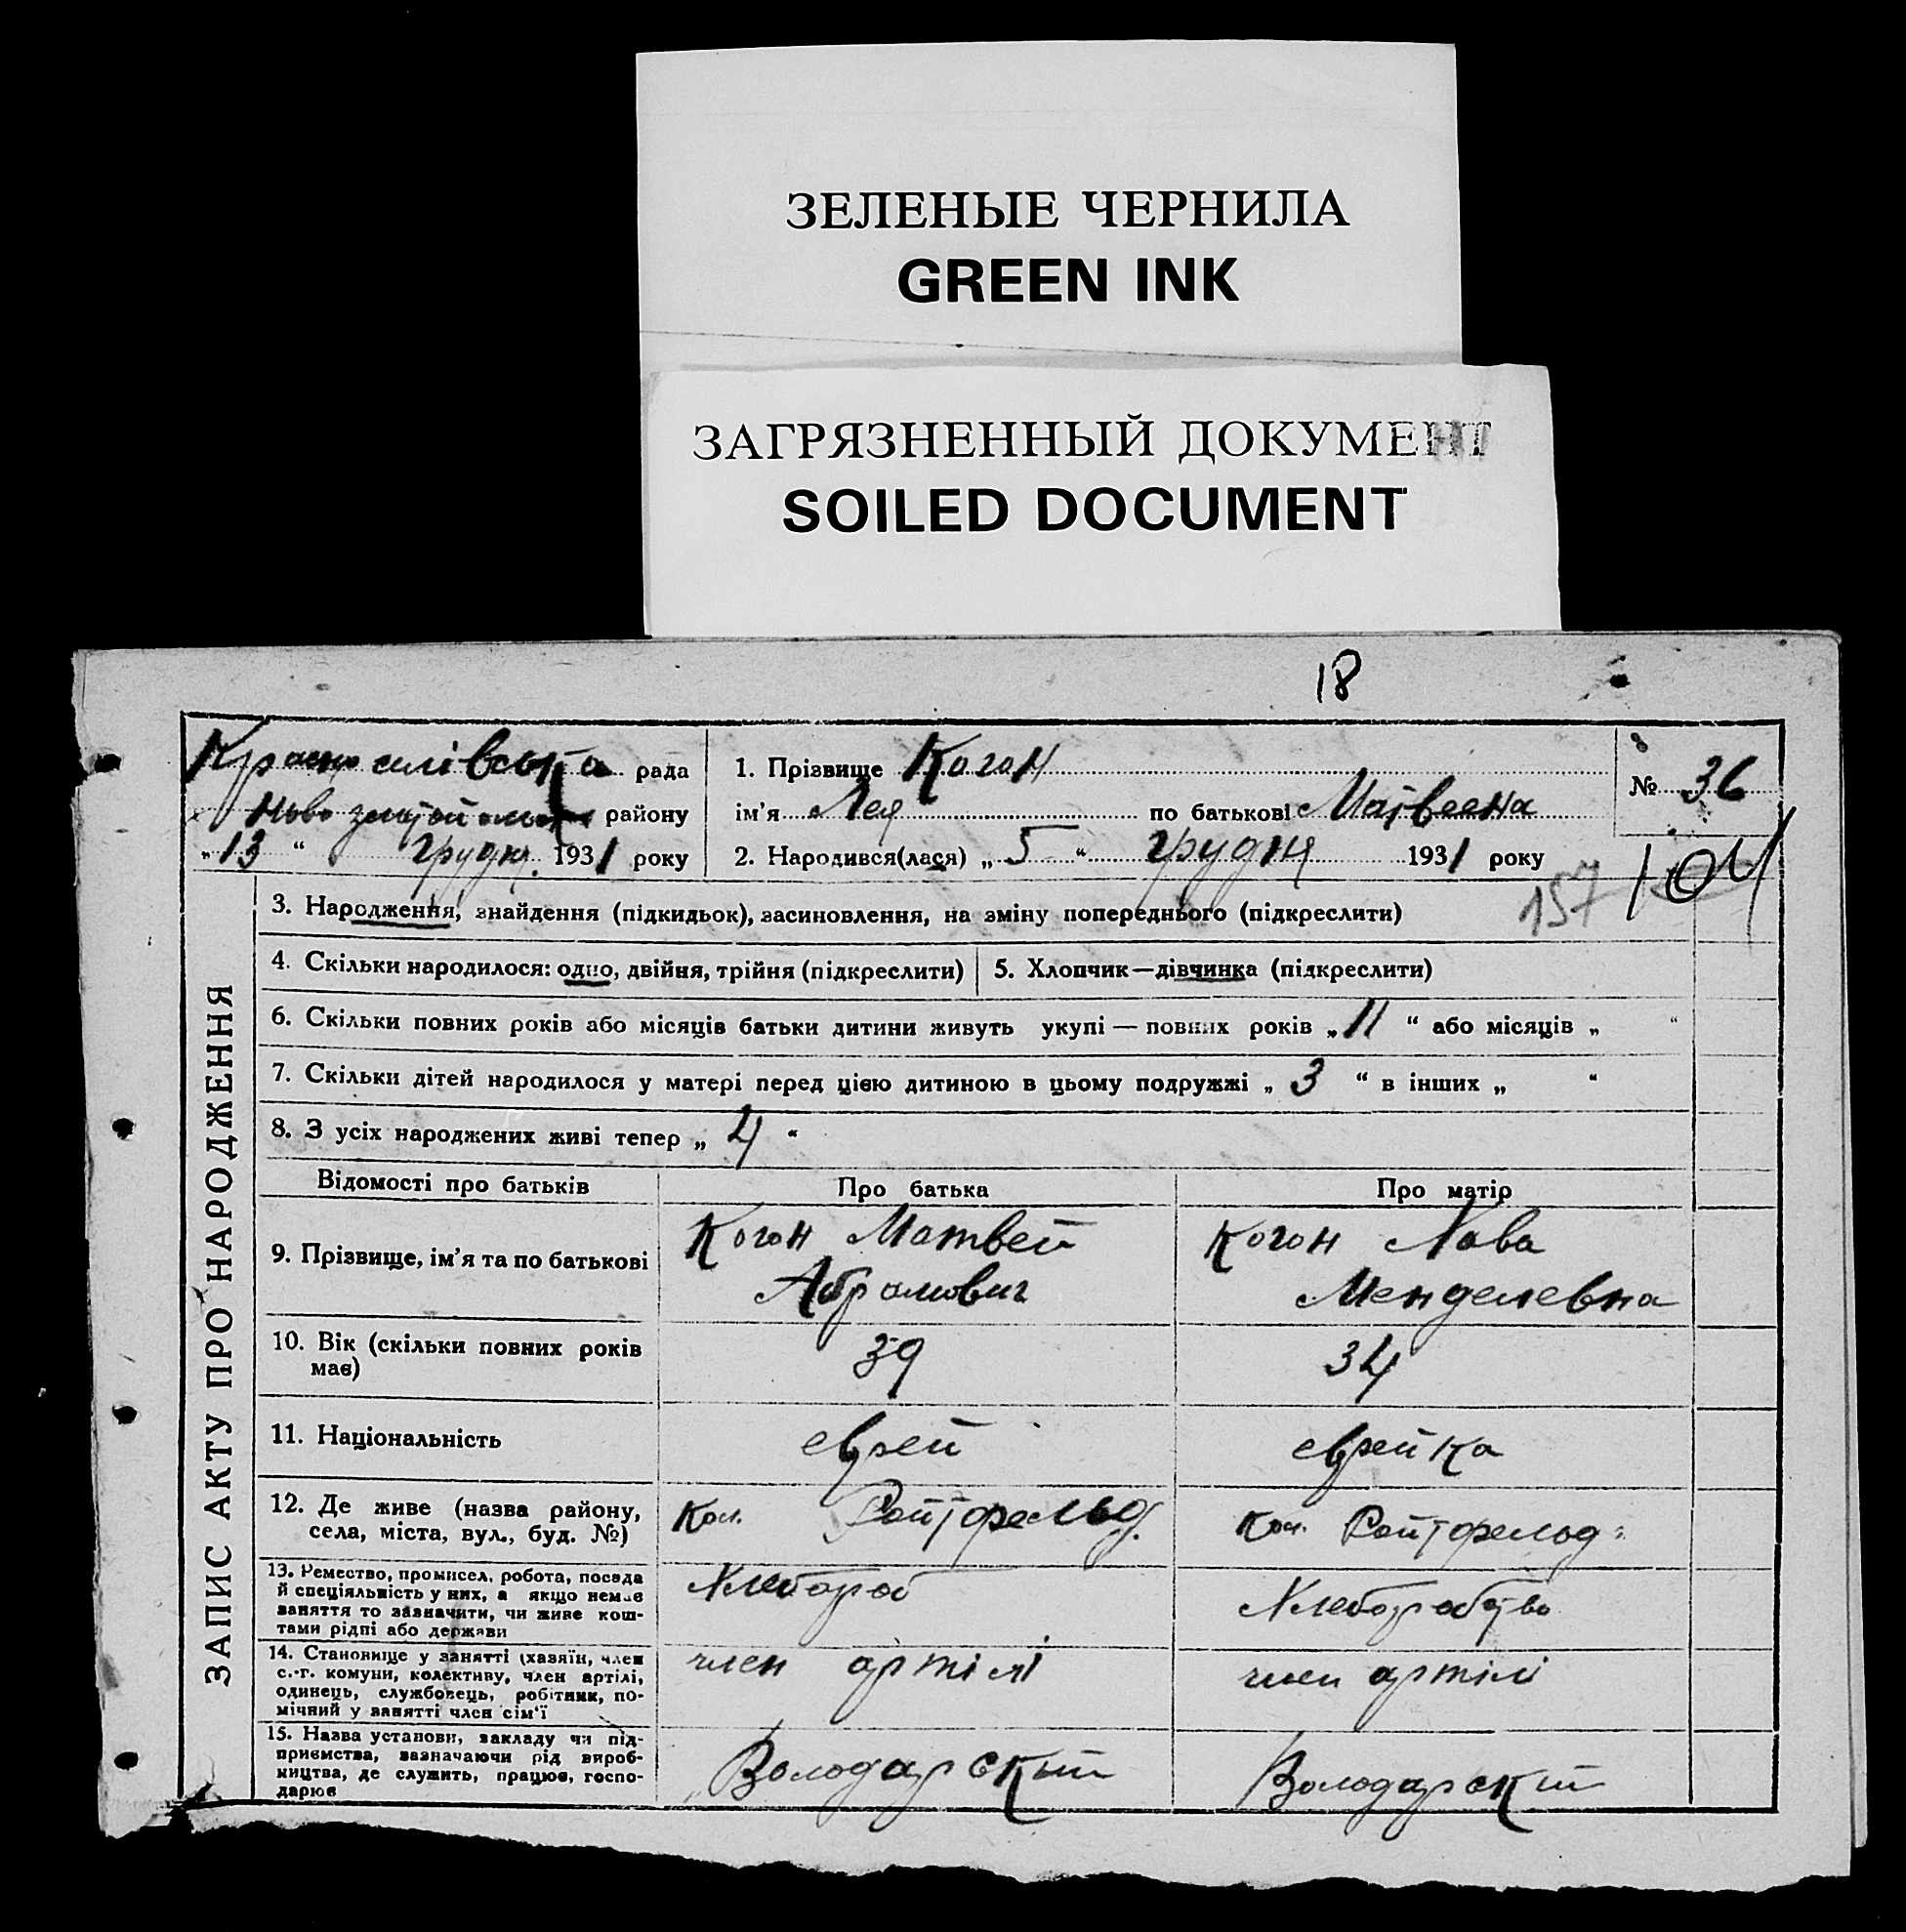 ЗЕЛЕНЫЕ ЧЕРНИЛА
GREEN INK
ЗАГРЯЗНЕННЫЙ ДОКУМЕНТ
SOILED DOCUMENT
18
Красноселівська рада
Ново златопольск району
„13“ грудня. 1931 року
1. Прізвище Когон
ім'я Лея по батькові Матвеена
2. Народився(лася) „5“ грудня 1931 року
№ 36
104
157
ЗАПИС АКТУ ПРО НАРОДЖЕННЯ
3. Народження, знайдення (підкидьок), засиновлення, на зміну попереднього (підкреслити)
4. Скільки народилося: одно, двійня, трійня (підкреслити) 5. Хлопчик—дівчинка (підкреслити)
6. Скільки повних років або місяців батьки дитини живуть укупі — повних років „11“ або місяців „ “
7. Скільки дітей народилося у матері перед цією дитиною в цьому подружжі „3“ в інших „ “
8. З усіх народжених живі тепер „4“
Відомості про батьків Про батька Про матір
9. Прізвище, ім'я та по батькові
Когон Матвей
Абрамович
Когон Хава
Менделевна
10. Вік (скільки повних років
має)
39
34
11. Національність
еврей
еврейка
12. Де живе (назва району,
села, міста, вул., буд. №)
Кол. Ройтфельд.
Кол. Ройтфельд
13. Ремество, промисел, робота, посада
й спеціяльність у них, а якщо немає
заняття то зазначити, чи живе кош-
тами рідні або держави
Хлебороб
Хлеборобство
14. Становище у занятті (хазяїн, член
с.-г. комуни, колективу, член артілі,
одинець, службовець, робітник, по-
мічний у занятті член сім'ї
член артілі
член артілі
15. Назва установи, закладу чи під-
приємства, зазначаючи рід вироб-
ництва, де служить, працює, госпо-
дарює
Володарский
Володарский